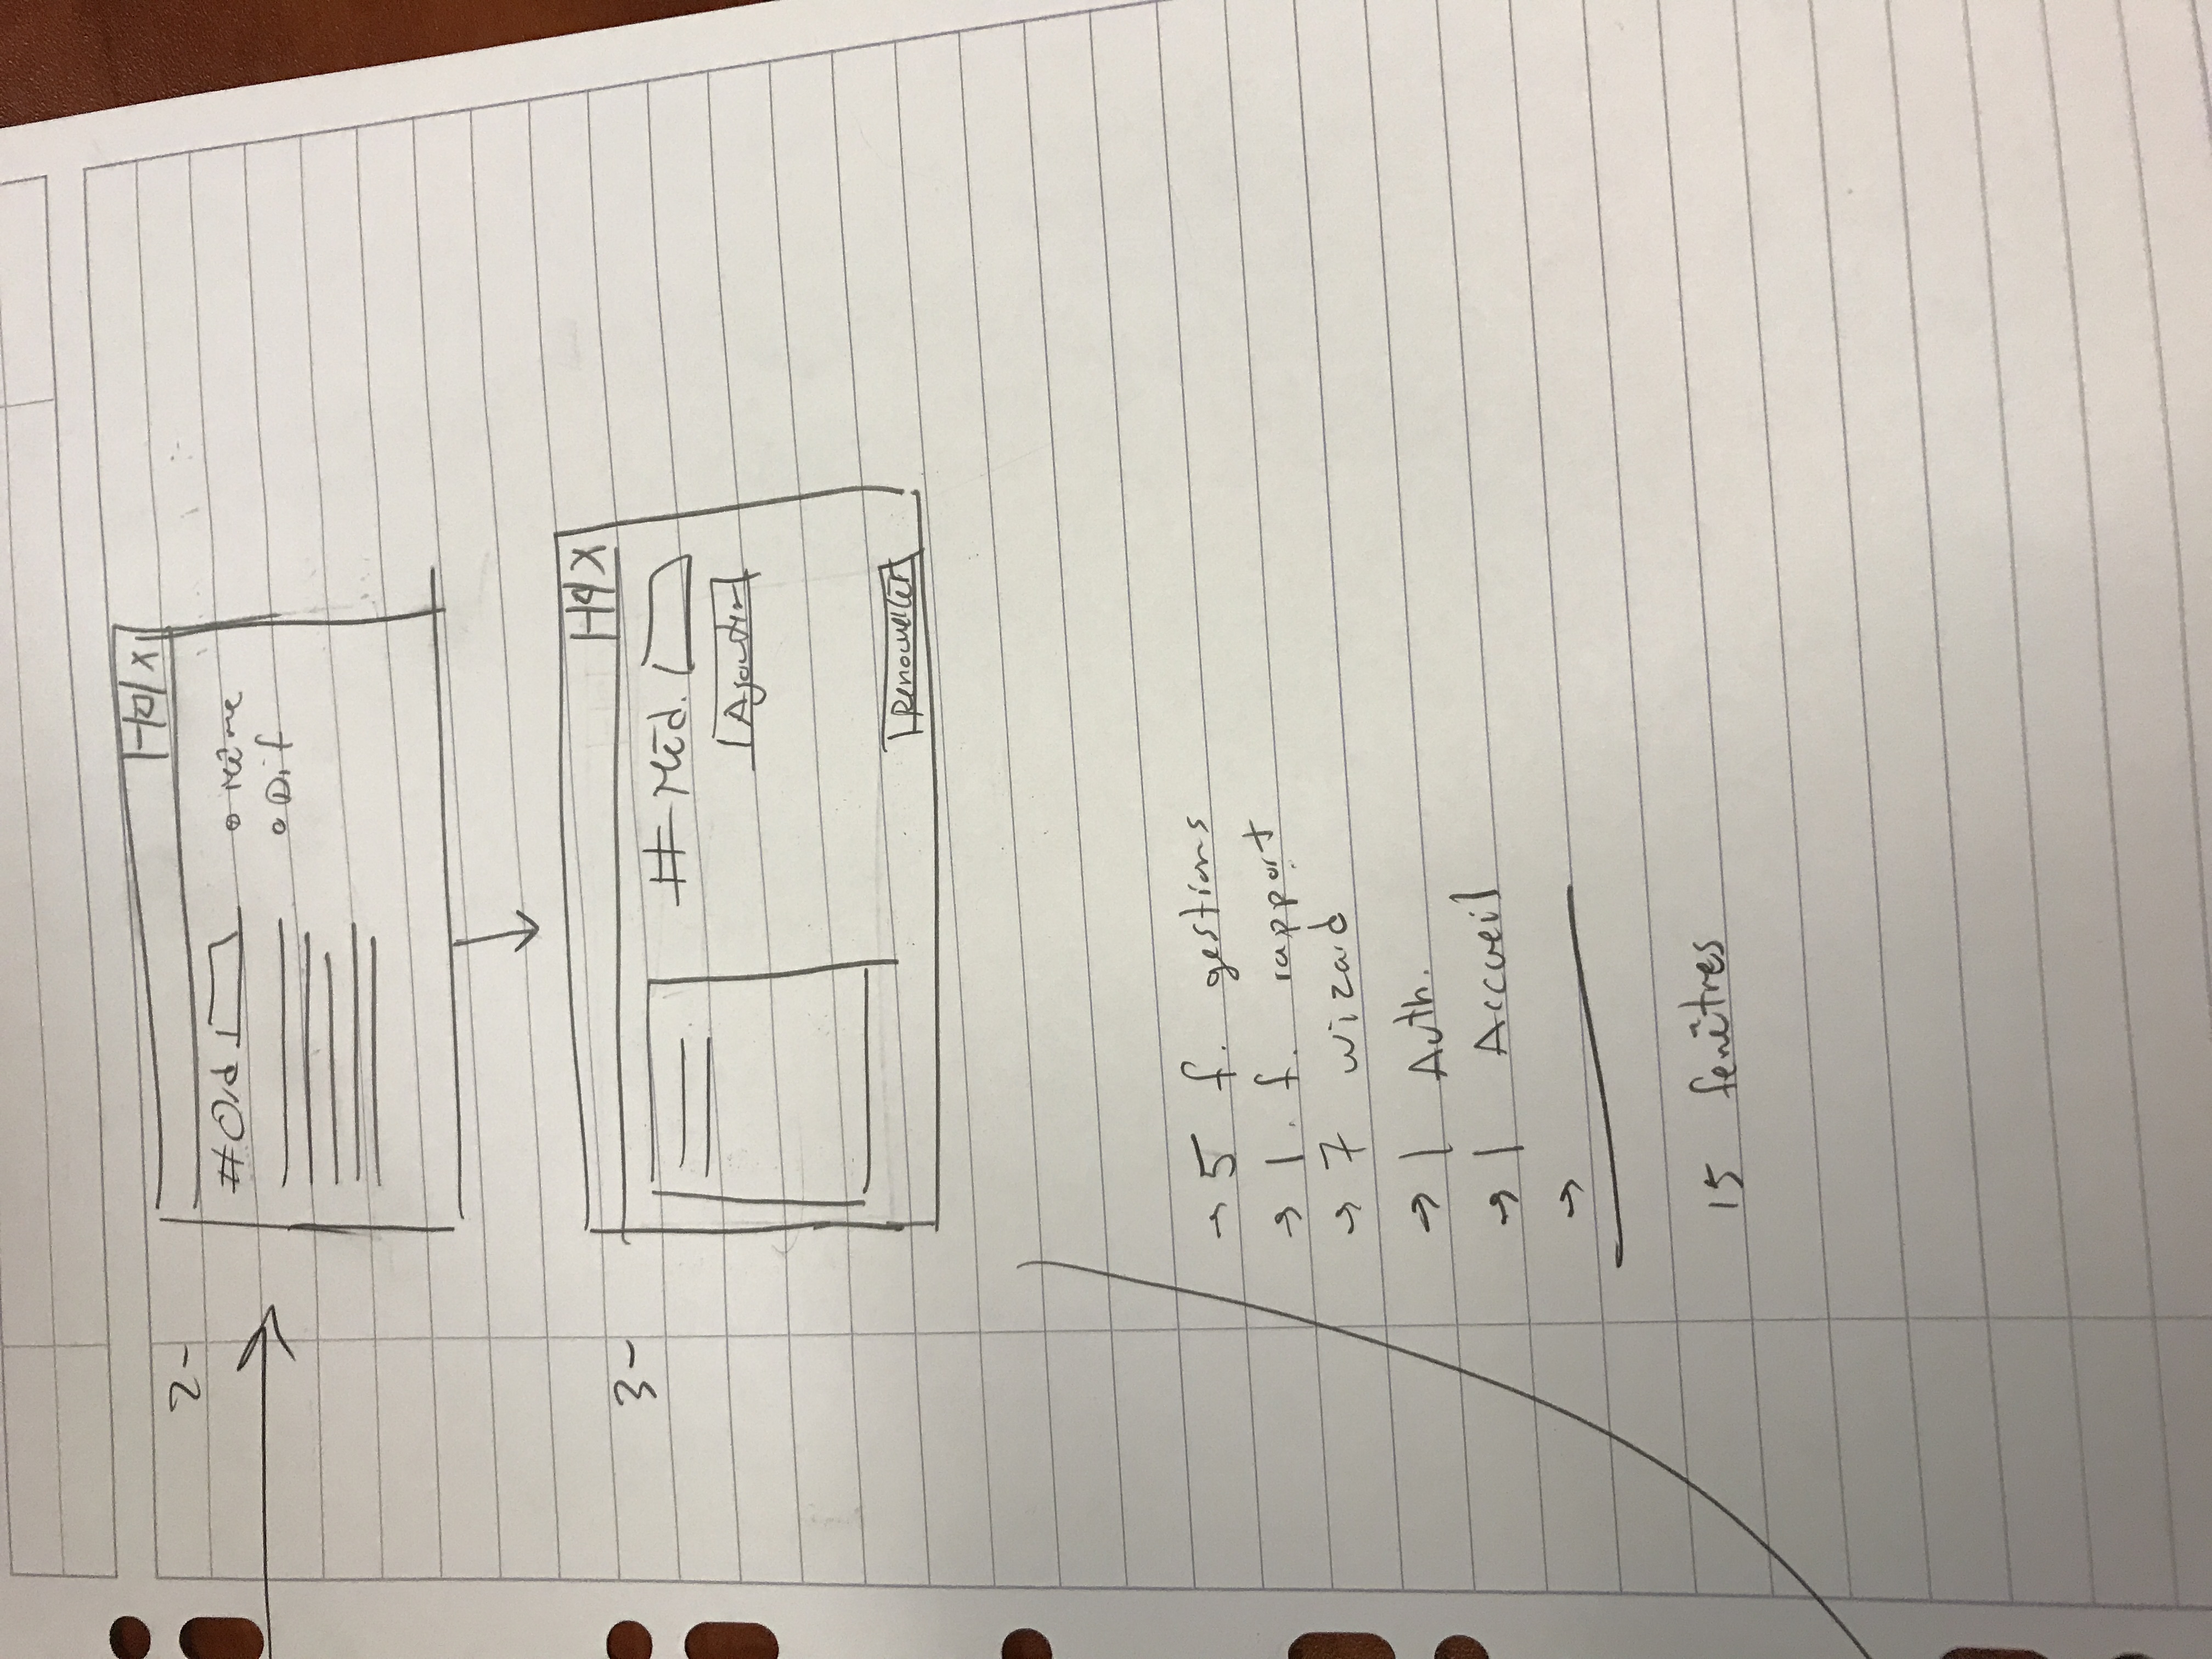 2-
#Ord
Même
Dif
3-
# Méd.
Ajouter
Renouveller
→ 5 f. gestions
→ 1. f. rapport
→ 7 wizard
→ 1 Auth.
→ 1 Accueil
→
15 fenêtres